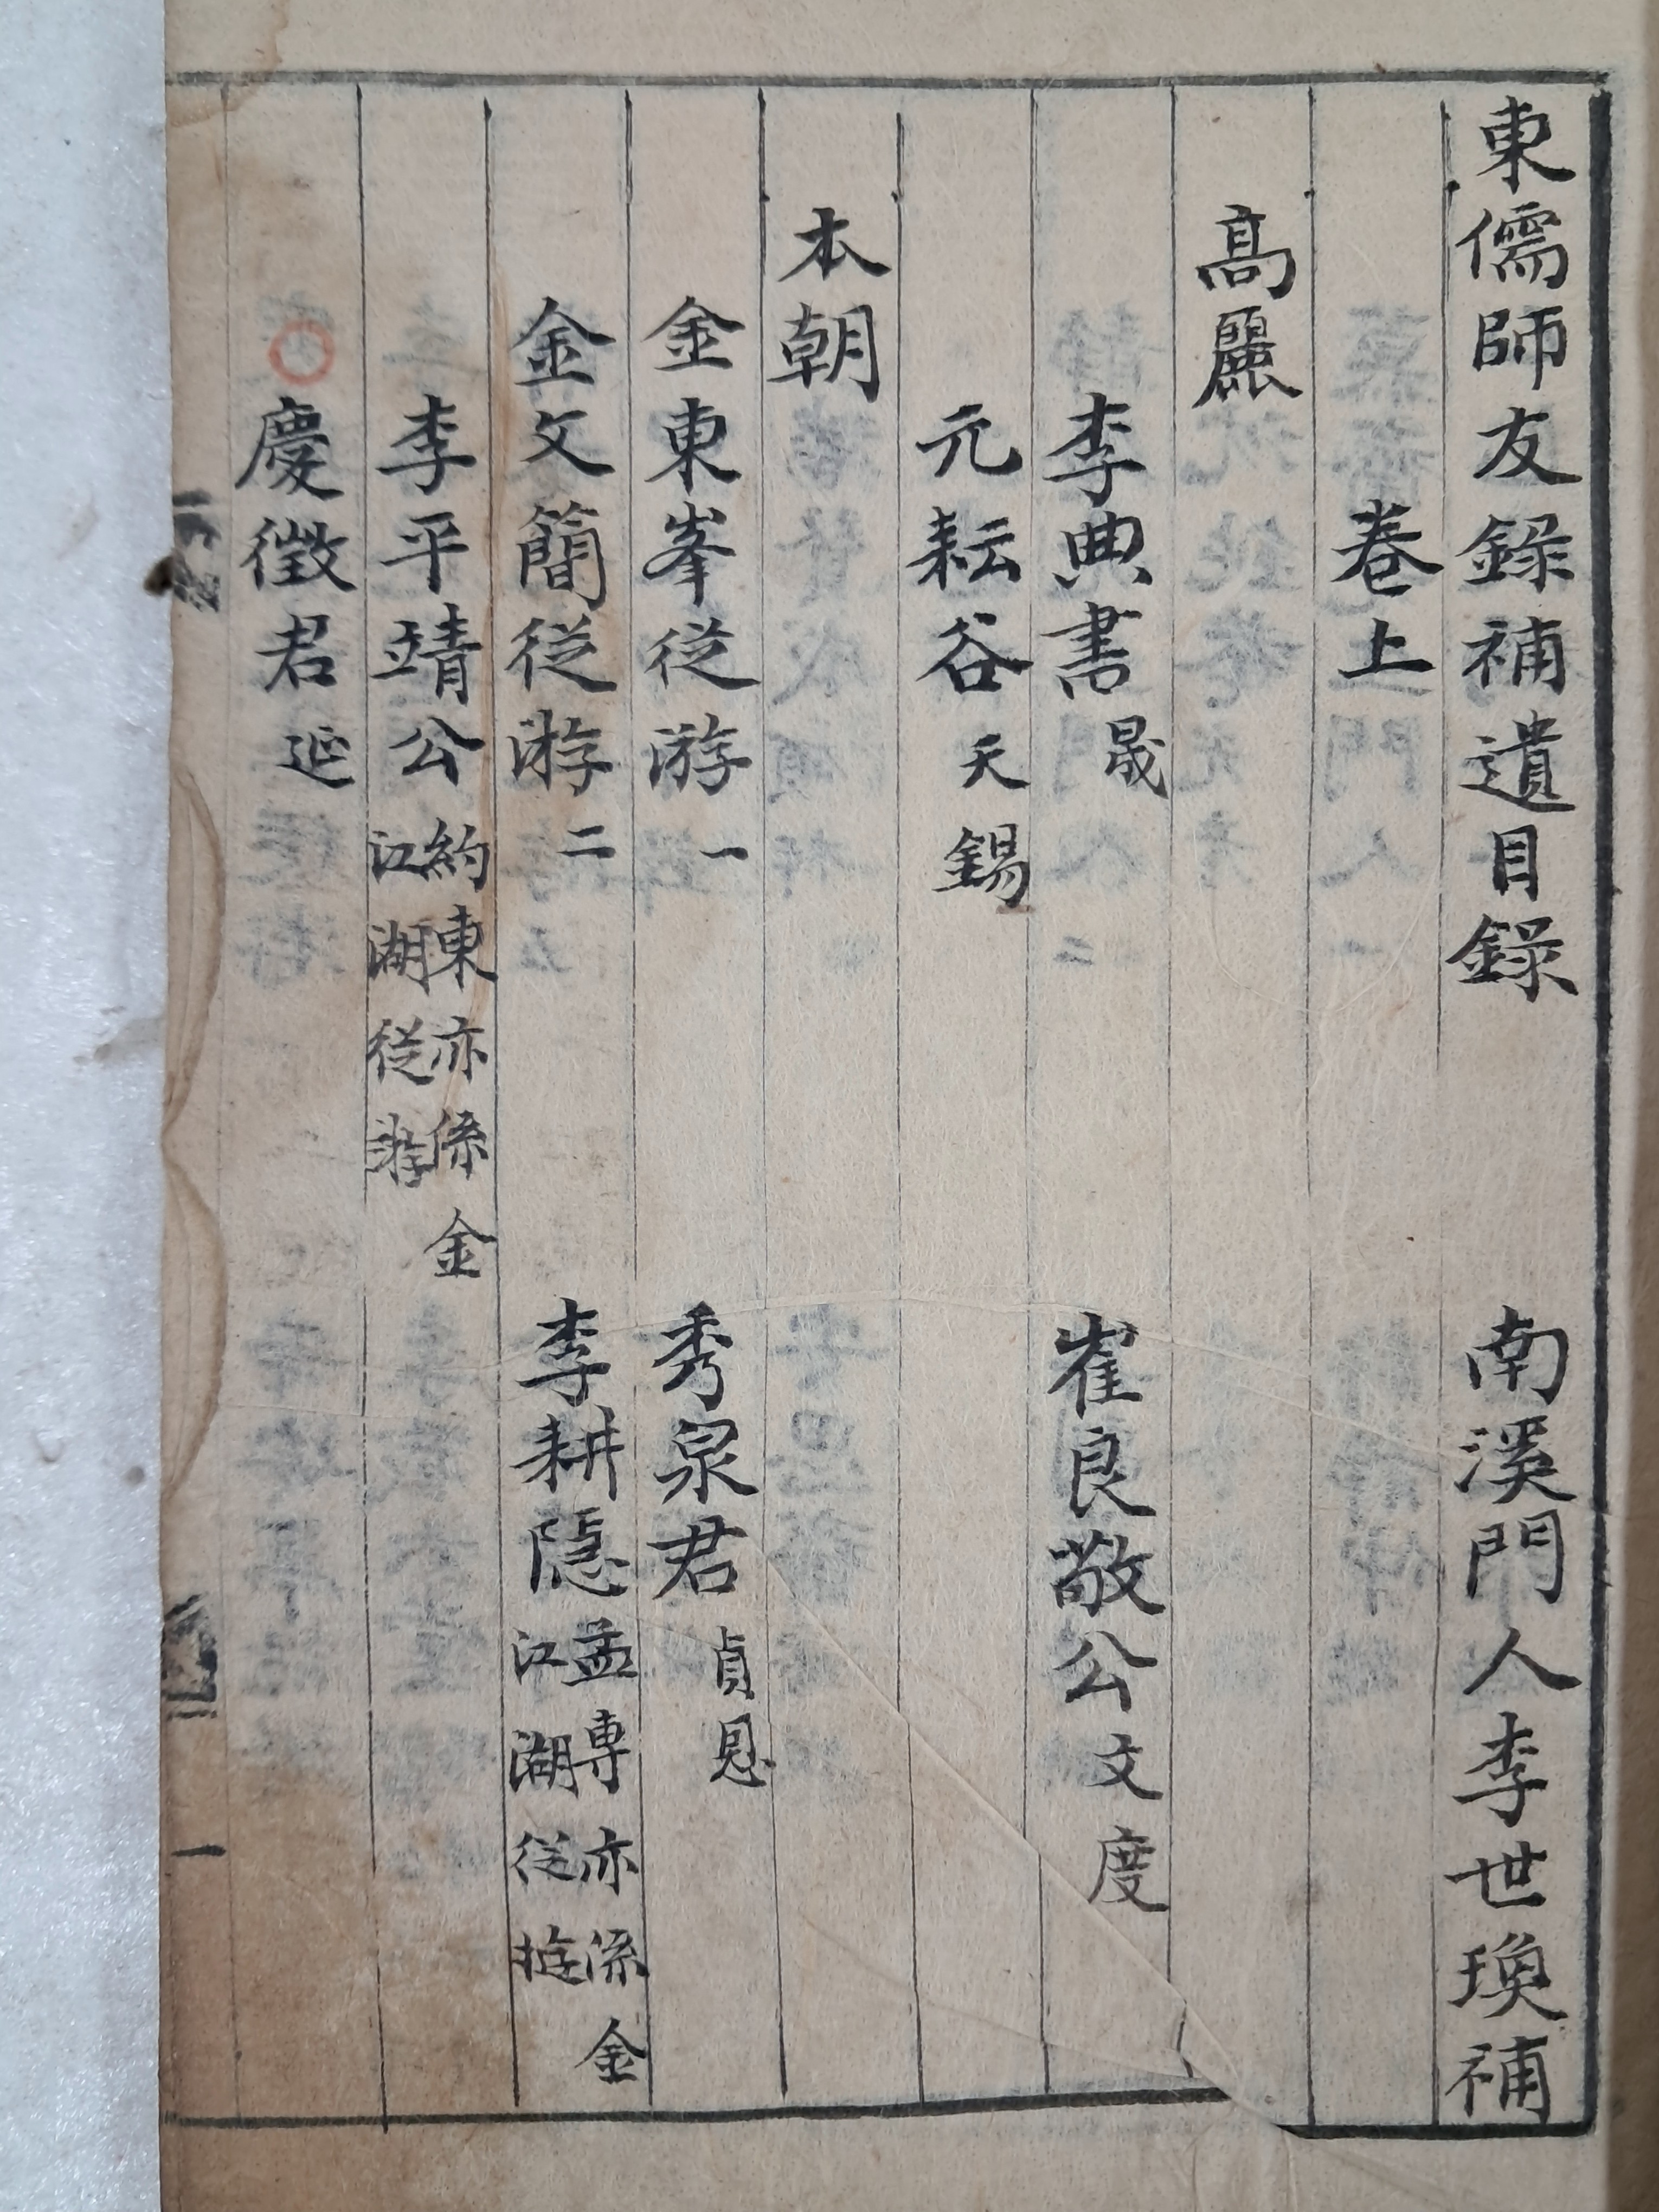 東儒師友錄補遺目錄 南溪門人李世瑍補
卷上
高麗
李典書晟 崔良敬公文度
元耘谷天錫
本朝
金東峯從游一 秀泉君貞恩
金文簡從游二 李耕隱孟專亦係金江湖從遊
李平靖公約東亦係金江湖從游
慶徵君延
一